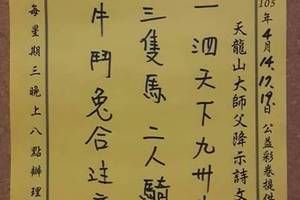 105年4月14.17.19.日公益彩卷提供
天龍山大師父降示詩文
一泗天下九卅
三隻馬二人騎
牛鬥兔合
每星期三晚上八點辦理